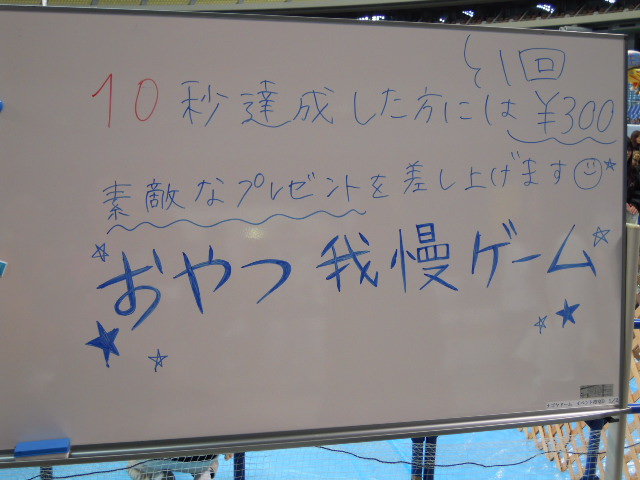 1回
10秒達成した方には ¥300
素敵なプレゼントを差し上げます
おやつ我慢ゲーム